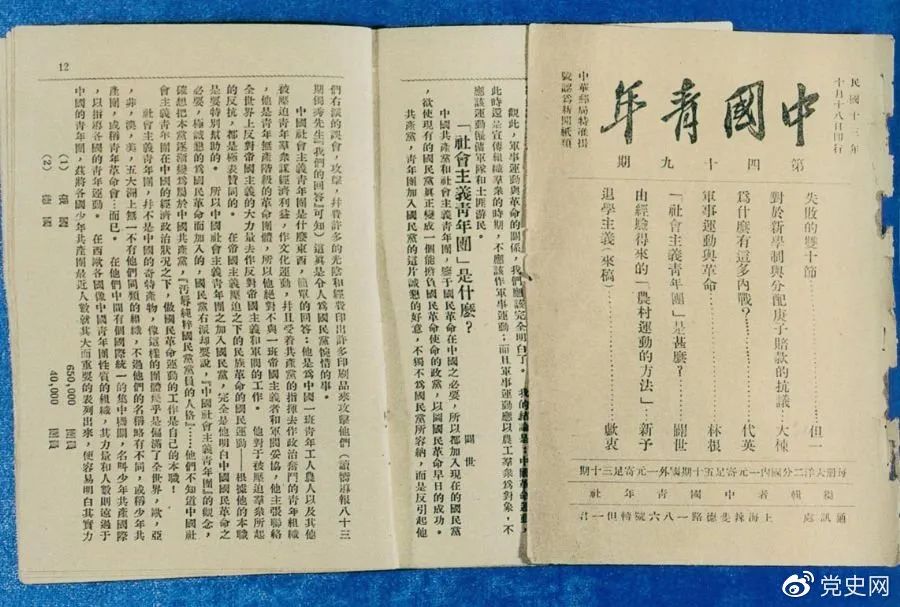 民國十三年
十月十八日印行
中國青年
第四十九期
中華郵局特准掛
號認為新聞紙類
失敗的雙十節……但一
對於新學制與分配庚子賠款的抗議……大棟
為什麼有這多內戰？……代英
軍事運動與革命……林根
「社會主義青年團」是甚麼？……闢世
由經驗得來的「農村運動的方法」……新予
退學主義（來稿）……獻衷
每期大洋二分國內一元寄足五十期國外一元寄足三十期
編輯者中國青年社
通訊處 上海辣斐德路一八六號轉但一君
觀此，軍事運動與革命的關係，我們應該完全明白了。我的結論是：中國革命運動，
此時還是宣傳組織羣衆的時期，不應該作軍事運動；而且軍事運動應以農工羣衆為對象，不
應該運動僱傭軍隊和土匪游民。
「社會主義青年團」是什麼？
闢世
中國共產黨和社會主義青年團，鑒于國民革命在中國之必要，所以都加入現在的國民黨
，欲使現有的國民黨眞正變成一個能擔負國民革命使命的政黨，以圖國民革命早日的成功。
共產黨，青年團加入國民黨的這片誠懇的好意，不獨不為國民黨所容納，而是反引起他
12
們右派的誤會，攻擊，幷費許多的光陰和經費印出許多印刷品來攻擊他們（讀嚮導報八十三
期獨秀先生『我們的回答』可知）這眞是令人為國民黨惋惜的事。
中國社會主義青年團是什麼東西，簡單的回答：他是為中國一班青年工人農人以及其他
被壓迫青年羣衆謀經濟利益，作文化運動，幷且受着共產黨的指揮去作政治奮鬥的青年組織
，他是青年無產階級的革命團體，所以他絕對不與一班帝國主義者和軍閥妥協，他主張聯絡
全世界上反對帝國主義的大力量去作反對帝國主義和軍閥的工作。 他對于被壓迫羣衆所起
的反抗，都是極表贊同的。 在帝國主義壓迫之下的民族革命的國民運動——根據他的本職
是要特別幫助的。 所以中國社會主義青年團之加入國民黨，完全是他明白中國國民革命之
必要，極誠懇的為國民革命而加入的，國民黨右派却要說，『中國社會主義青年團』的觀念，
確想把本黨逐漸變為屬於中國共產黨，『汚辱純粹國民黨黨員的人格』……他們不知道中國社
會主義青年團在中國的經濟政治狀況之下，做國民革命運動的工作是自己的本職！
社會主義青年團，幷不是中國的奇特產物，像這樣的團體幾乎是偏滿了全世界，歐，亞
，非，澳，美，五大洲上無一不有他們同類的組織，不過他們的名稱略有不同，或稱少年共
產團，或稱青年革命會…而已。 在他們中間有個國際統一的集中機關，名呌少年共產國際
，以指導各國的青年運動。 在西歐各國像中國青年團性質的組織，其力量和人數則遠過于
中國的青年團，茲將各國少年共產團最近人數就其大而重要的表列出來，使容易明白其實力
（1） 650,000
（2） 40,000
党史网